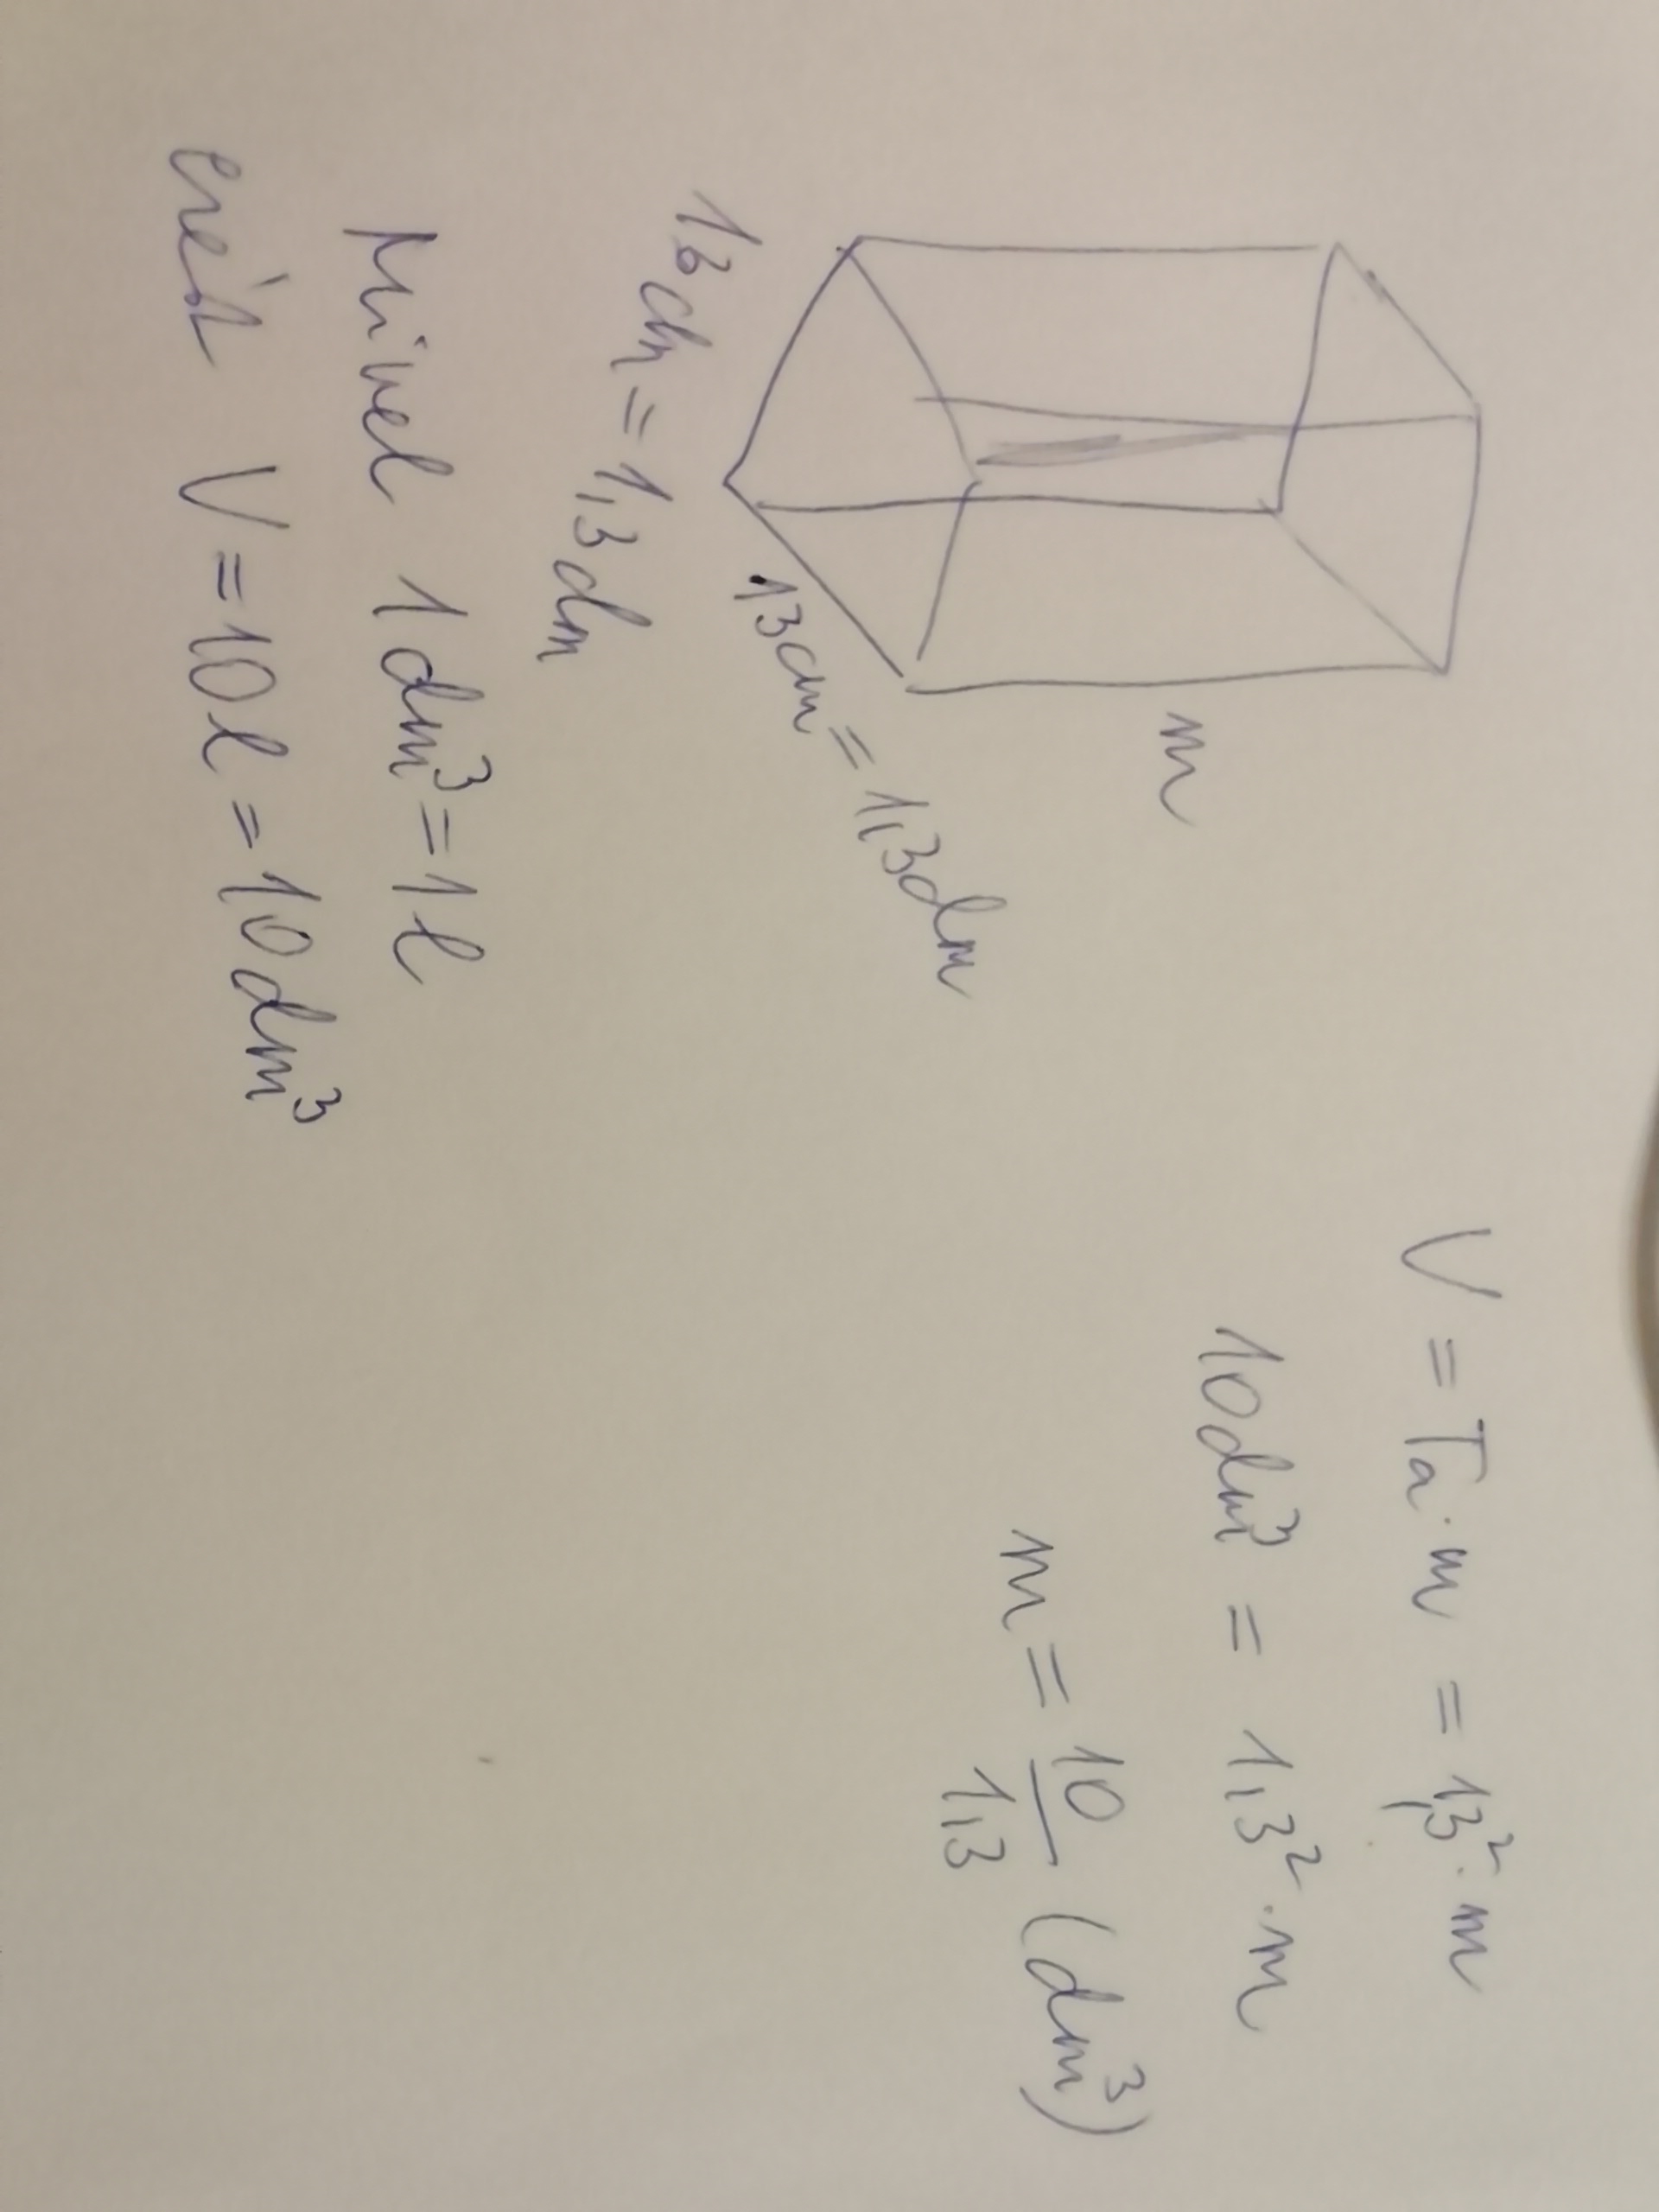 m
13cm = 1,3dm
13cm = 1,3dm
Mivel 1dm³ = 1l
ezért V = 10l = 10dm³
V = Ta · m = 1,3² · m
10dm³ = 1,3² · m
m = 10/1,3 (dm³)